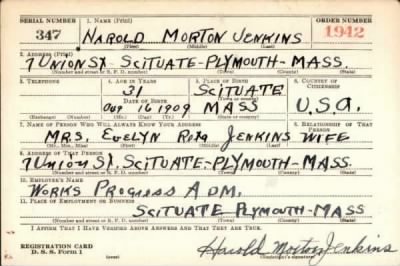 SERIAL NUMBER 1. NAME (Print) ORDER NUMBER
347 HAROLD MORTON JENKINS 1942
(First) (Middle) (Last)
2. ADDRESS (Print)
7 UNION ST. SCITUATE-PLYMOUTH-MASS.
(Number and street or R. F. D. number) (Town) (County) (State)
3. TELEPHONE 4. AGE IN YEARS 5. PLACE OF BIRTH 6. COUNTRY OF CITIZENSHIP
31 SCITUATE
DATE OF BIRTH (Town or county)
16 1909 MASS U.S.A.
(Exchange) (Number) (Mo.) (Day) (Yr.) (State or country)
7. NAME OF PERSON WHO WILL ALWAYS KNOW YOUR ADDRESS 8. RELATIONSHIP OF THAT PERSON
MRS. EVELYN ROSA JENKINS WIFE
(Mr., Mrs., Miss) (First) (Middle) (Last)
9. ADDRESS OF THAT PERSON
7 UNION ST. SCITUATE-PLYMOUTH-MASS.
(Number and street or R. F. D. number) (Town) (County) (State)
10. EMPLOYER'S NAME
WORKS PROGRESS ADM.
11. PLACE OF EMPLOYMENT OR BUSINESS
SCITUATE PLYMOUTH-MASS
(Number and street or R. F. D. number) (Town) (County) (State)
I AFFIRM THAT I HAVE VERIFIED ABOVE ANSWERS AND THAT THEY ARE TRUE.
REGISTRATION CARD
D. S. S. Form 1 Harold Morton Jenkins